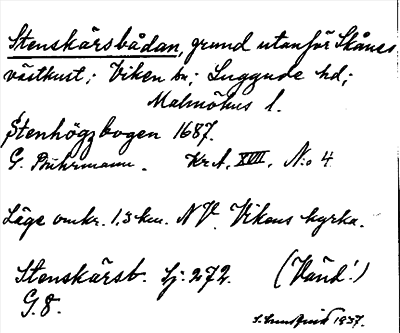 Stenskärsbådan, grund utanför Skånes
västkust; Viken sn; Luggude hd;
Malmöhus l.
Stenhögzbogen 1687.
G. Buhrmann. Kr. A. XVIII. N:o 4
Läge omkr. 1,3 km. NV. Vikens kyrka.
Stenskärsb. Sj: 272. (Vänd!)
G. 8.
1937.